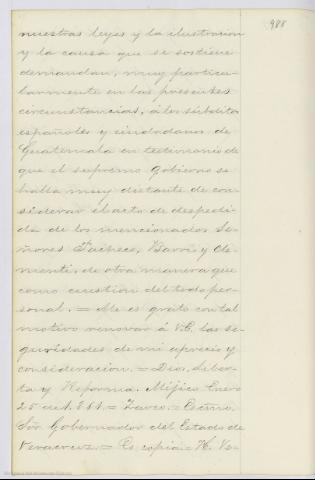 988
nuestras leyes y la ilustracion
y la causa que se sostiene
demandan, muy particu-
larmente en las presentes
circunstancias, á los súbditos
españoles y ciudadanos de
Guatemala en testimonio de
que el supremo Gobierno se
halla muy distante de con-
siderar el acto de despedi-
da de los mencionados Se-
ñores Pacheco, Barrio y Cle-
menti, de otra manera que
como cuestion del todo per-
sonal. = Me es grato con tal
motivo renovar á V.E. las se-
guridades de mi aprecio y
consideracion. = Dios, Liber-
tad y Reforma. Méjico Enero
25 de 1861. = Zarco. = Escmo.
Sor. Gobernador del Estado de
Veracruz. = Es copia = H. Ve-